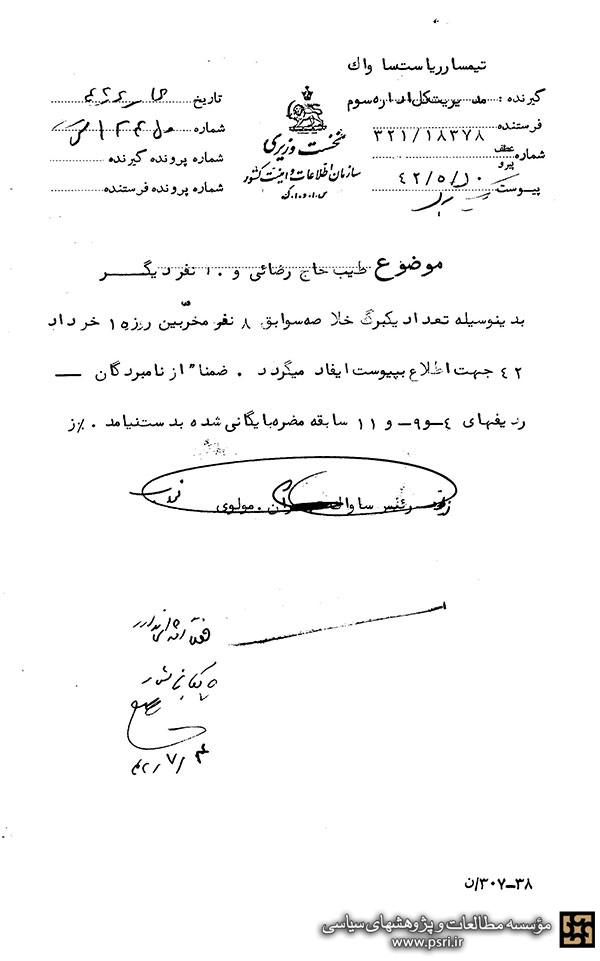 تیمسار ریاست ساواك
گیرنده : مدیریت کل اداره سوم
فرستنده
شماره عطف پیرو ۳۲۱/۱۸۳۷۸
۴۲/۵/۱۰
پیوست
نخست وزیری
سازمان اطلاعات و امنیت کشور
س.ا.و.ا.ک
تاریخ
شماره
شماره پرونده گیرنده
شماره پرونده فرستنده
موضوع طیب حاج رضائی و ۱۰ نفر دیگر
بدینوسیله تعداد یکبرگ خلاصه سوابق ۸ نفر مخربین روز ۱۵ خرداد
۴۲ جهت اطلاع بپیوست ایفاد میگردد . ضمنا" از نامبردگان —
ردیفهای ۴-و۹- و ۱۱ سابقه مضره بایگانی شده بدست نیامد . %ز
رئیس ساواك تهران . مولوی
بایگانی شود
۴۲/۷/۴
۳۸-۳۰۷/ن
مؤسسه مطالعات و پژوهشهای سیاسی
www.psri.ir